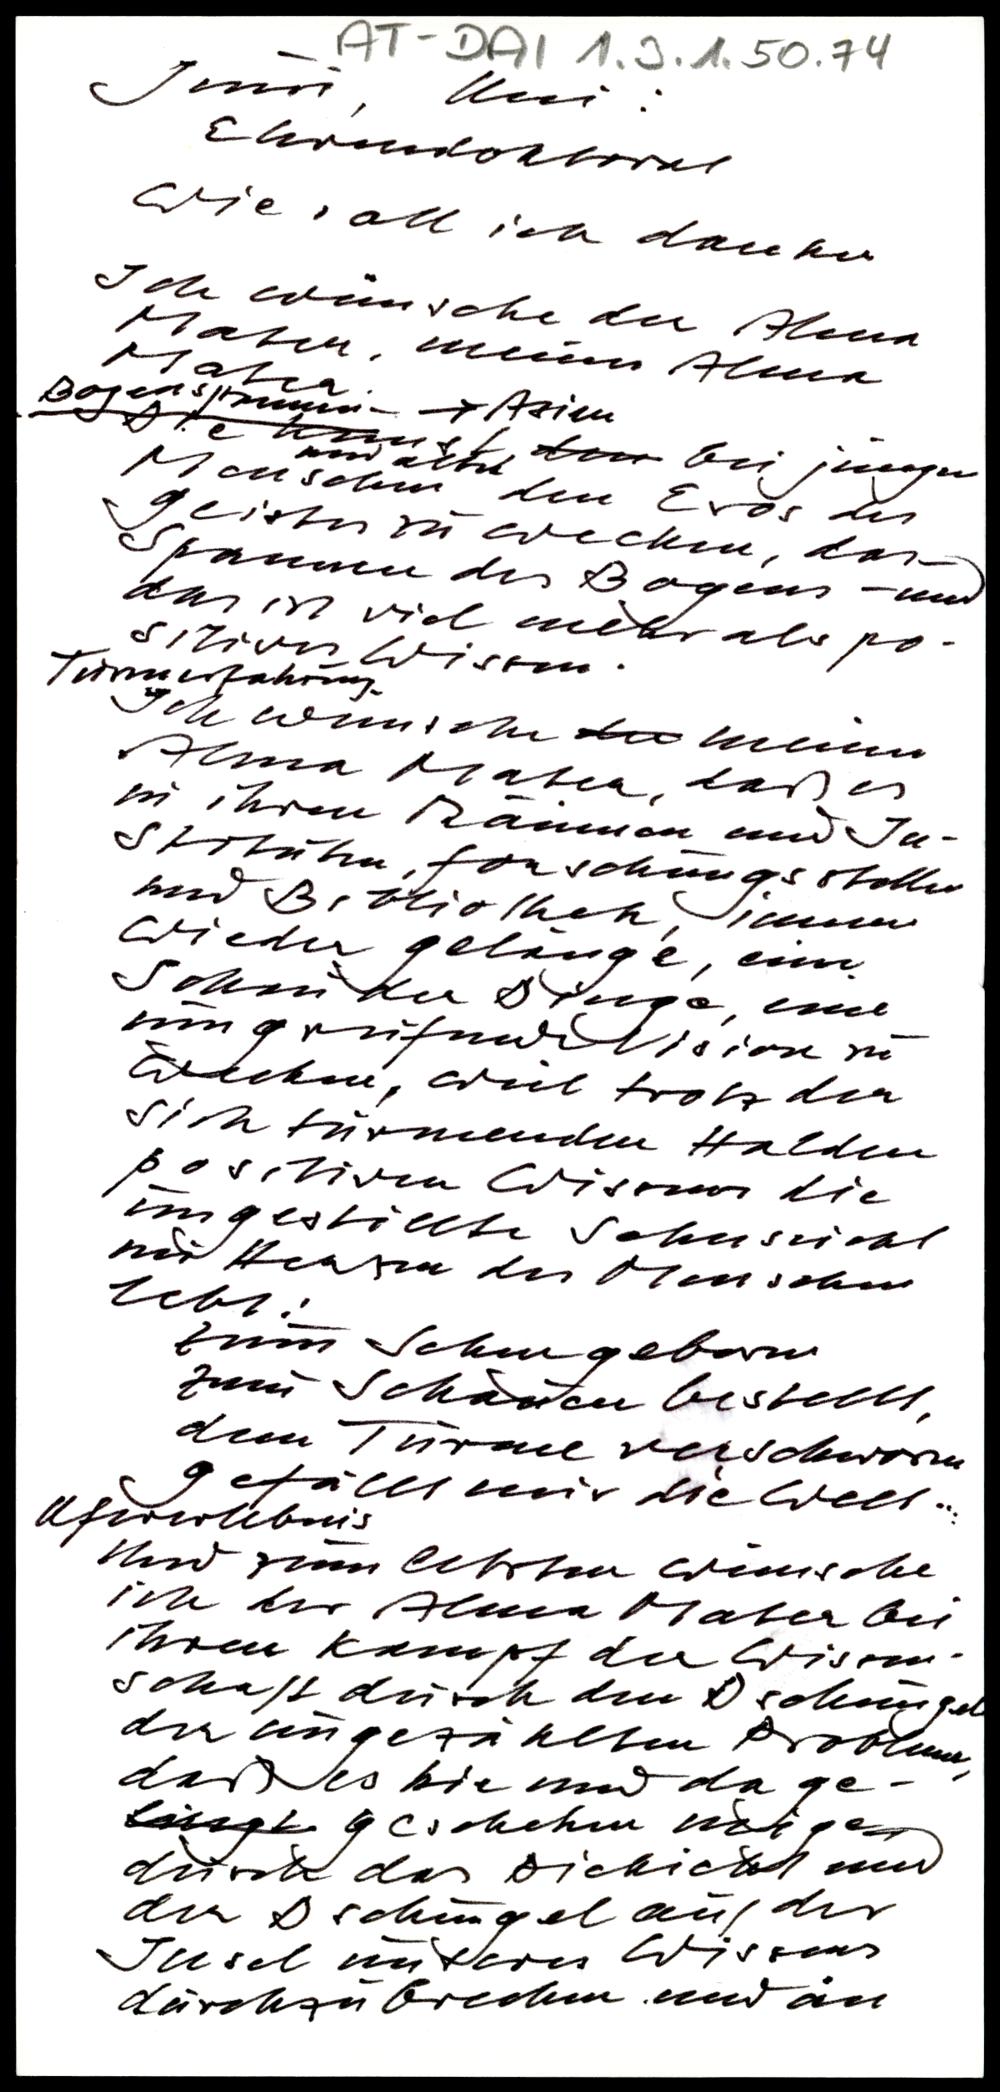 AT-DAI 1.3.1.50.74
Ehrendoktorat
Wie soll ich danken
Ich wünsche der Alma
Mater, meiner Alma
Mater
Bogenspannen → Asien
Die Kunst den bei jungen
und alten
Menschen den Eros des
Geistes zu wecken, das
Spannen des Bogens - und
das ist viel mehr als po-
sitives Wissen.
Turmerfahrung
Ich wünsche der meiner
Alma Mater, daß es
in ihren Räumen und In-
stituten, Forschungsstellen
und Bibliothek, immer
wieder gelänge, eine
Schau der Dinge, eine
umgreifende Vision zu
wecken, weil trotz der
sich türmenden Halden
positiven Wissens die
ungestillte Sehnsucht
im Herzen des Menschen
lebt:
Zum Sehen geboren
zum Schauen bestellt,
dem Turme verschworen
gefällt mir die Welt...
Ufererlebnis
Und zum letzten wünsche
ich der Alma Mater bei
ihrem Kampf der Wissen-
schaft durch den Dschungel
der ungezählten Probleme,
daß es hie und da ge-
lingt geschehen möge
durch das Dickicht und
der Dschungel auf der
Insel unseres Wissens
durchzubrechen und an